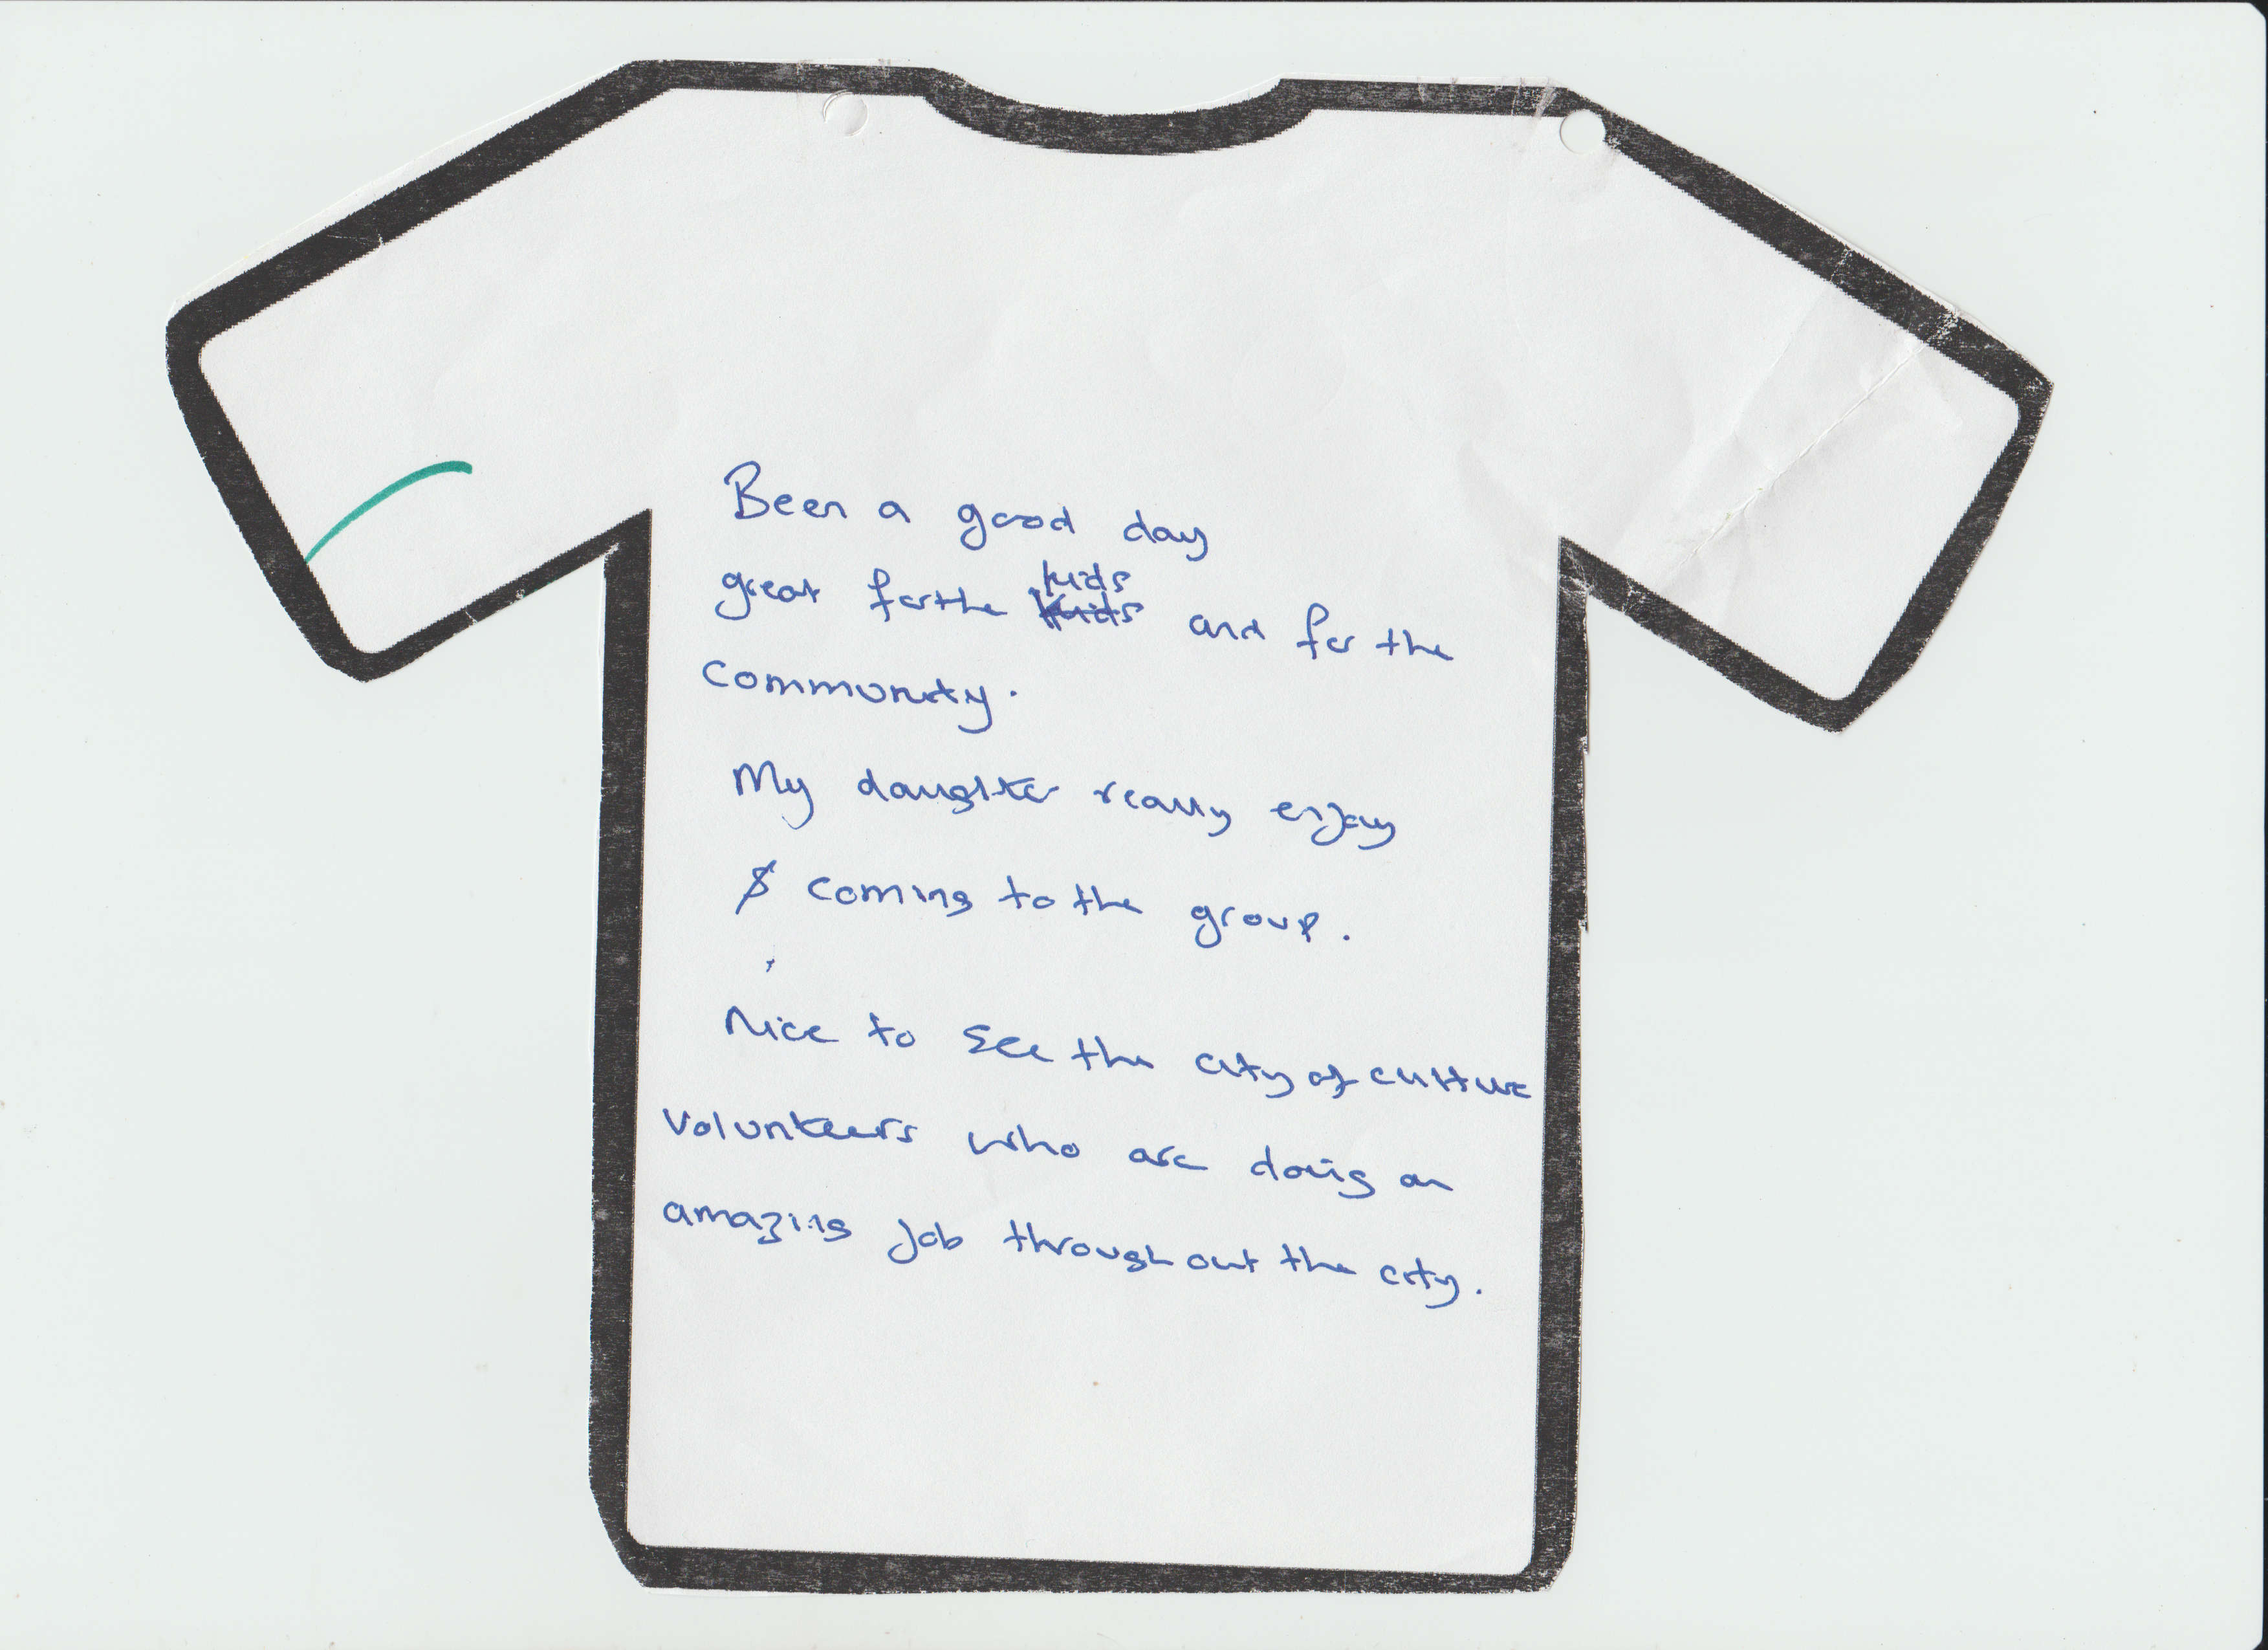 Been a good day
great for the kids and for the
community.
My daughter really enjoy
coming to the group.
Nice to see the city of culture
volunteers who are doing an
amazing job throughout the city.